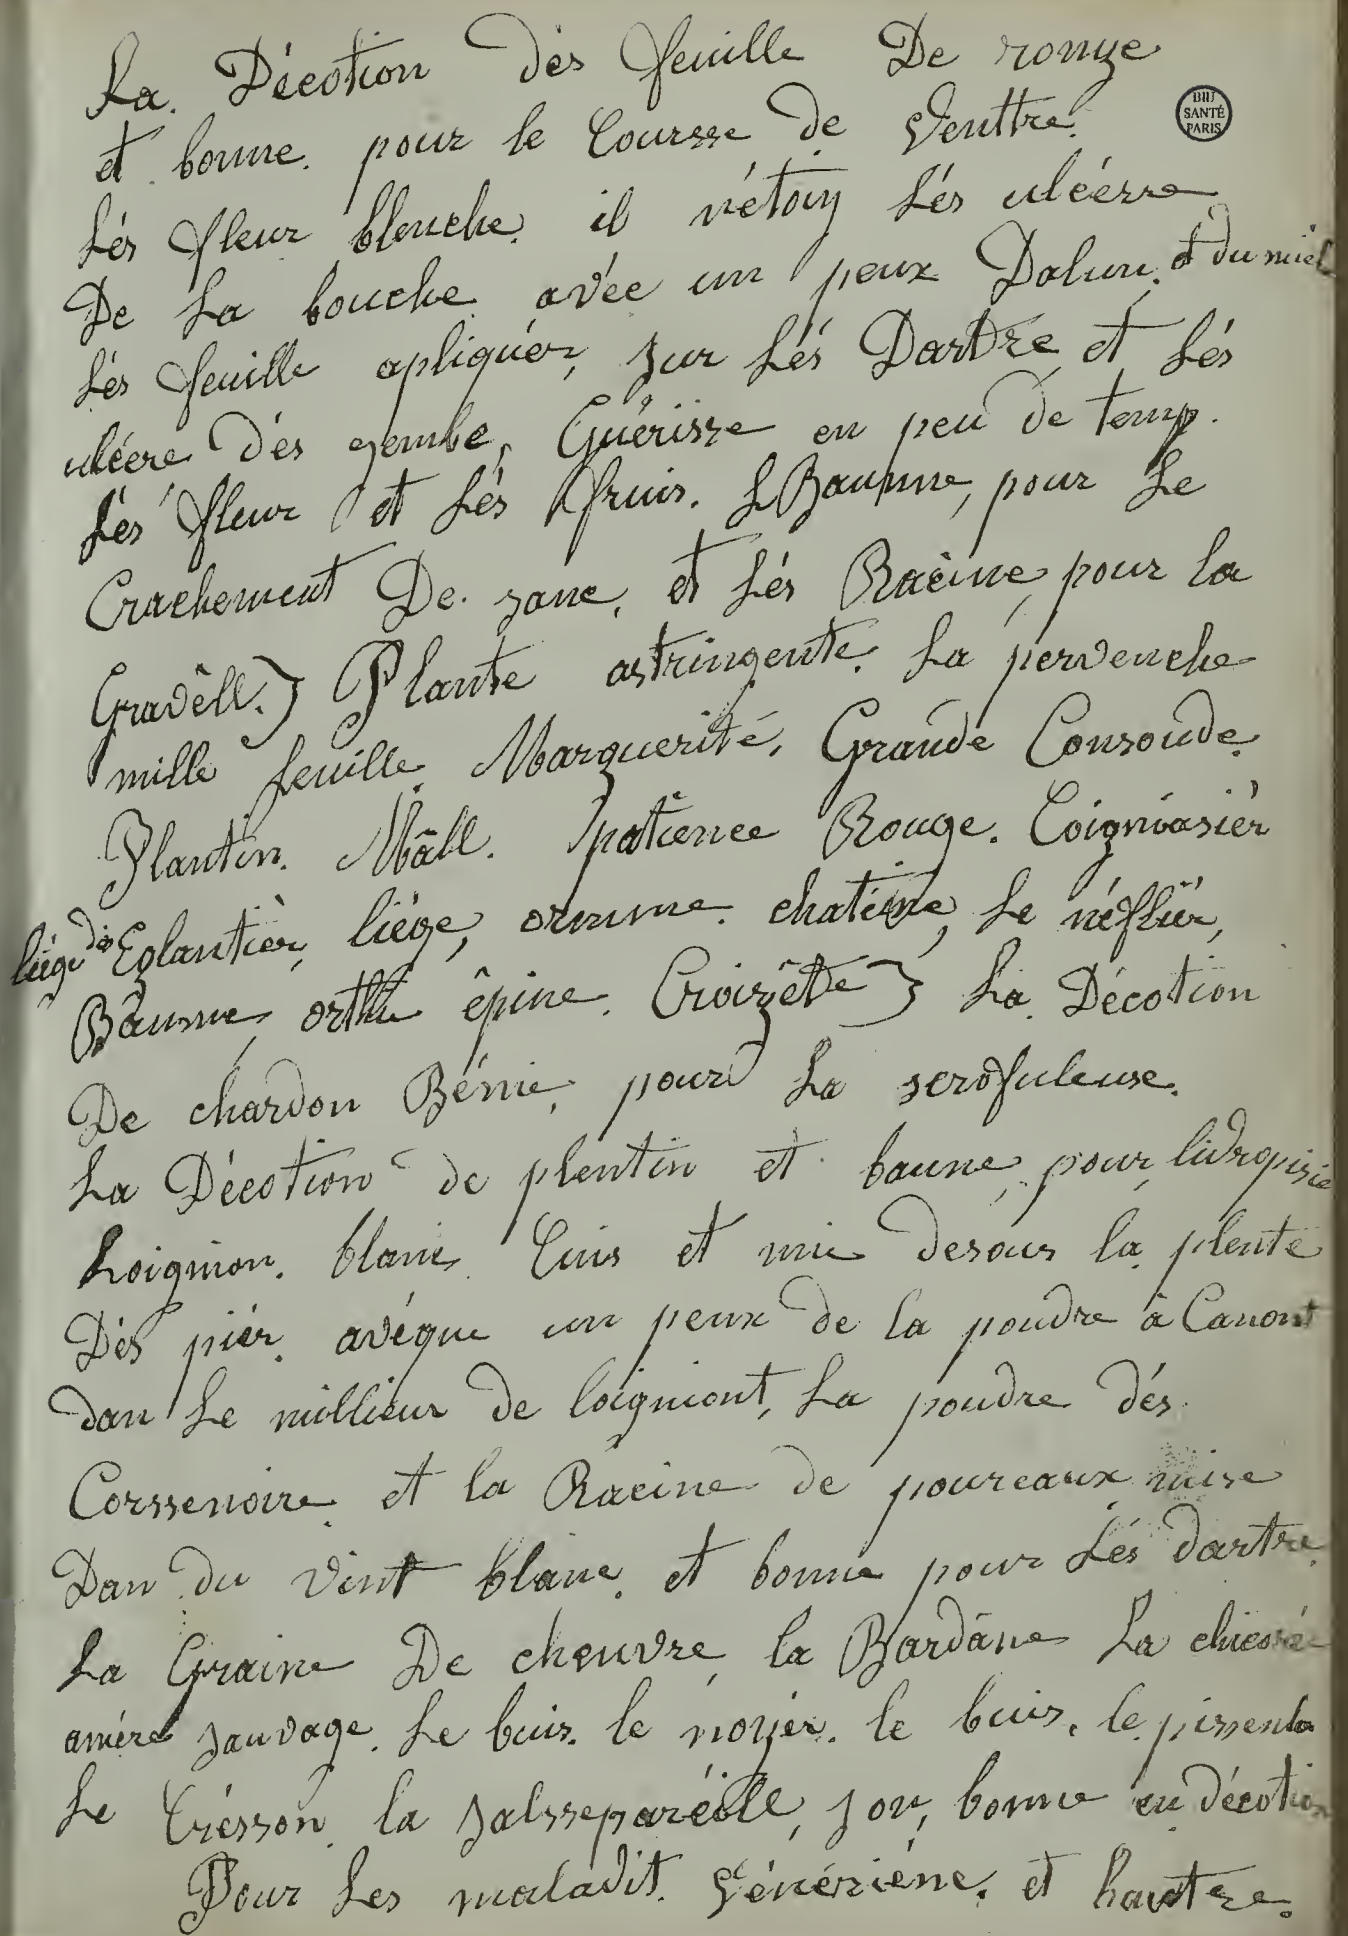 La. Décotion dés feuille De ronze
BIU SANTÉ PARIS
et bonne. pour le Coursse de Venttre.
Lés fleur blenche. il nétoiy Lés uléérre
De La bouche avéc un peux Dalun. et du miel
Lés feuille apliquér, sur Lés Dartre et Lés
uléere dés gembe, Guérisse en peu de temp.
Lés fleur et Lés fruis. LBaumne, pour Le
Crachement De. sanc, et Lés Raçine, pour la
Gravêll.} Plante astringente. La pervenche
mille feuille. Marguerité. Grande Consoude.
Plantin. Mâll. patience Rouge. Coignasiér
liége dés Eglantiér, liége, ormme. chateine, Le néfliér,
Bâume, orthi êpine. Croizéte } La. Décotion
De chardon Bénie. pour La scrofuleuse.
La Décotion de plentin et baune pour lidropisie
Loignion. blanc Cuis et mie desous la plente
Dés piér. avéque un peux de la poudre à Canont
dan Le millieur de loigniont, La poudre dés
Corssenoire et la Racine de poureaux mise
Dan du vint blanc. et bonne pour Lés dartre.
La Graine De cheuvre la Bardâne La chicorée
amére sauvage. Le buis. le noyér. le buis. le pissenla
Le Crésson la salssepareille, son, bonne en décotion
Pour Les maladit. Vénériéne. et hautre.